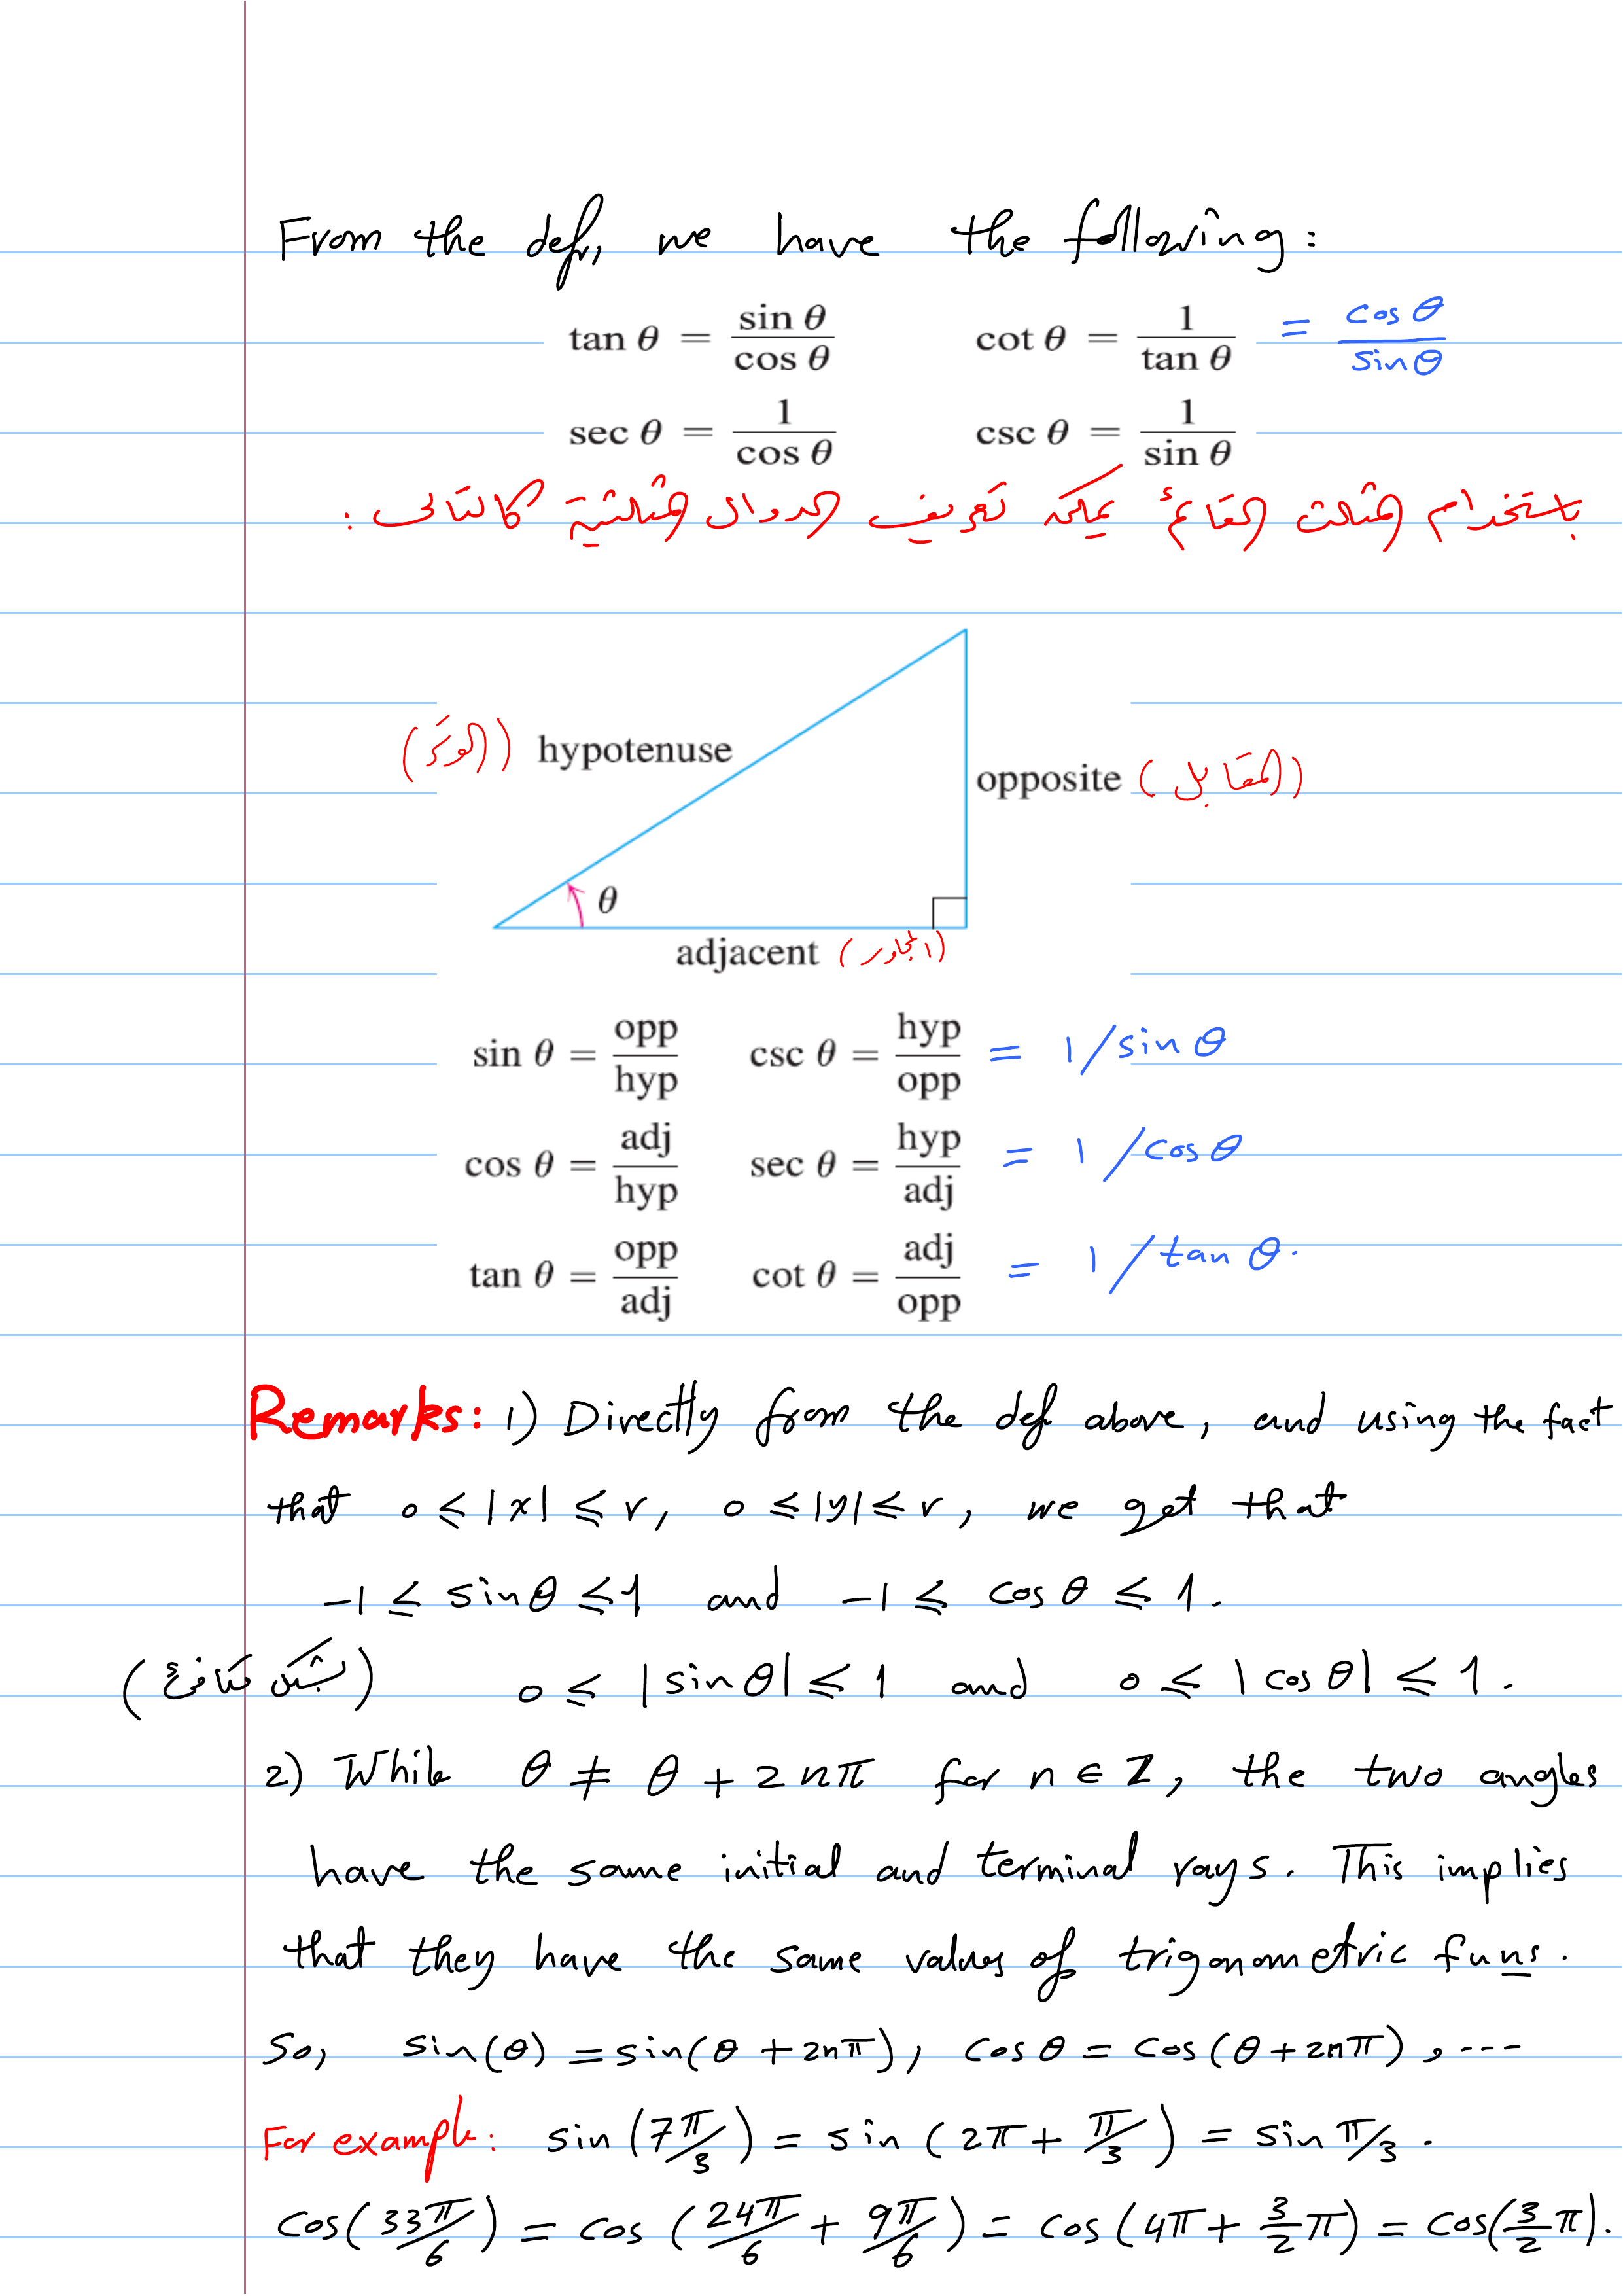 From the defn, we have the following:
tan θ = sin θ / cos θ    cot θ = 1 / tan θ = cos θ / sin θ
sec θ = 1 / cos θ    csc θ = 1 / sin θ
باستخدام المثلث القائم يمكن تعريف الدوال المثلثية كالتالى :
hypotenuse (الوتر)
opposite (المقابل)
θ
adjacent (المجاور)
sin θ = opp / hyp    csc θ = hyp / opp = 1/sin θ
cos θ = adj / hyp    sec θ = hyp / adj = 1/cos θ
tan θ = opp / adj    cot θ = adj / opp = 1/tan θ.
Remarks: 1) Directly from the def above, and using the fact
that 0 ≤ |x| ≤ r, 0 ≤ |y| ≤ r, we get that
-1 ≤ sin θ ≤ 1 and -1 ≤ cos θ ≤ 1.
(بشكل مكافئ) 0 ≤ |sin θ| ≤ 1 and 0 ≤ |cos θ| ≤ 1.
2) While θ ≠ θ + 2nπ for n ∈ Z, the two angles
have the same initial and terminal rays. This implies
that they have the same values of trigonometric funs.
So, sin(θ) = sin(θ + 2nπ), cos θ = cos(θ + 2nπ), ---
For example: sin(7π/3) = sin(2π + π/3) = sin π/3.
cos(33π/6) = cos(24π/6 + 9π/6) = cos(4π + 3/2 π) = cos(3/2 π).